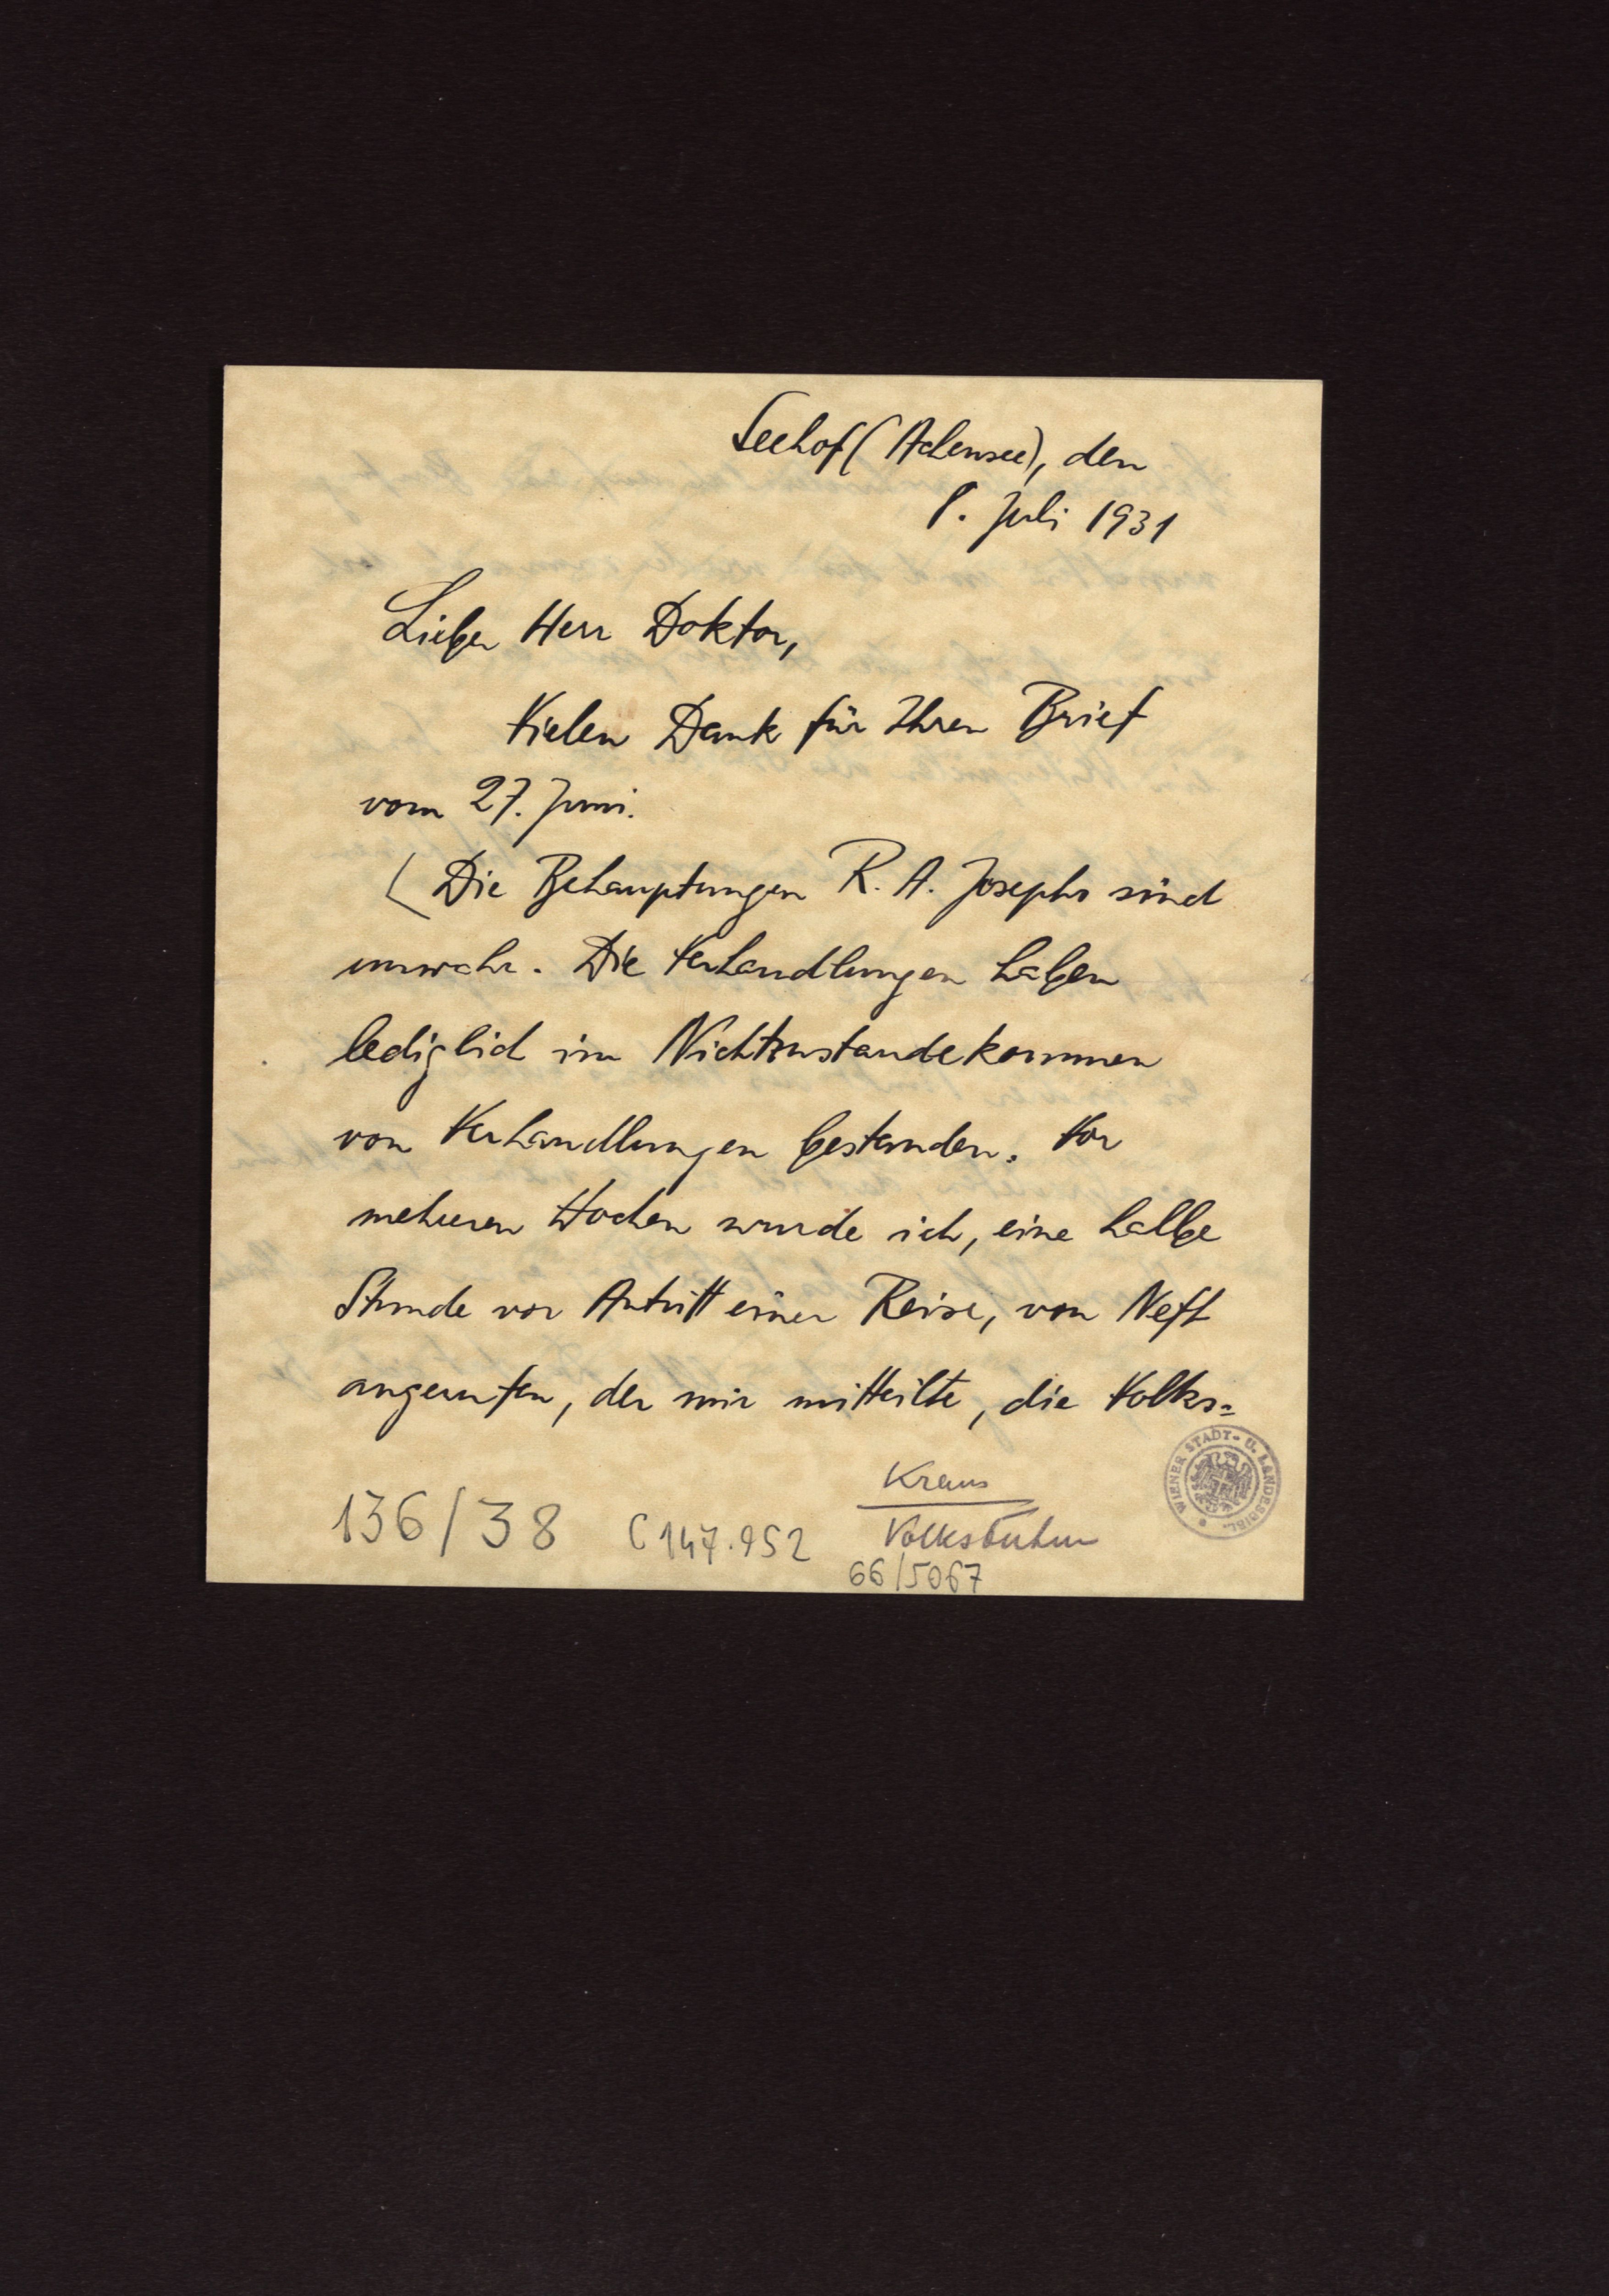 Seehof (Achensee), den
1. Juli 1931
Lieber Herr Doktor,
Vielen Dank für Ihren Brief
vom 27. Juni.
( Die Behauptungen R. A. Josephs sind
unwahr. Die Verhandlungen haben
lediglich im Nichtzustandekommen
von Verhandlungen bestanden. Vor
mehreren Wochen wurde ich, eine halbe
Stunde vor Antritt einer Reise, von Neft
angerufen, der mir mitteilte, die Volks=
Kraus
Volksbühne
136/38 C 147.952
66/5067
WIENER STADT- U. LANDESBIBL.